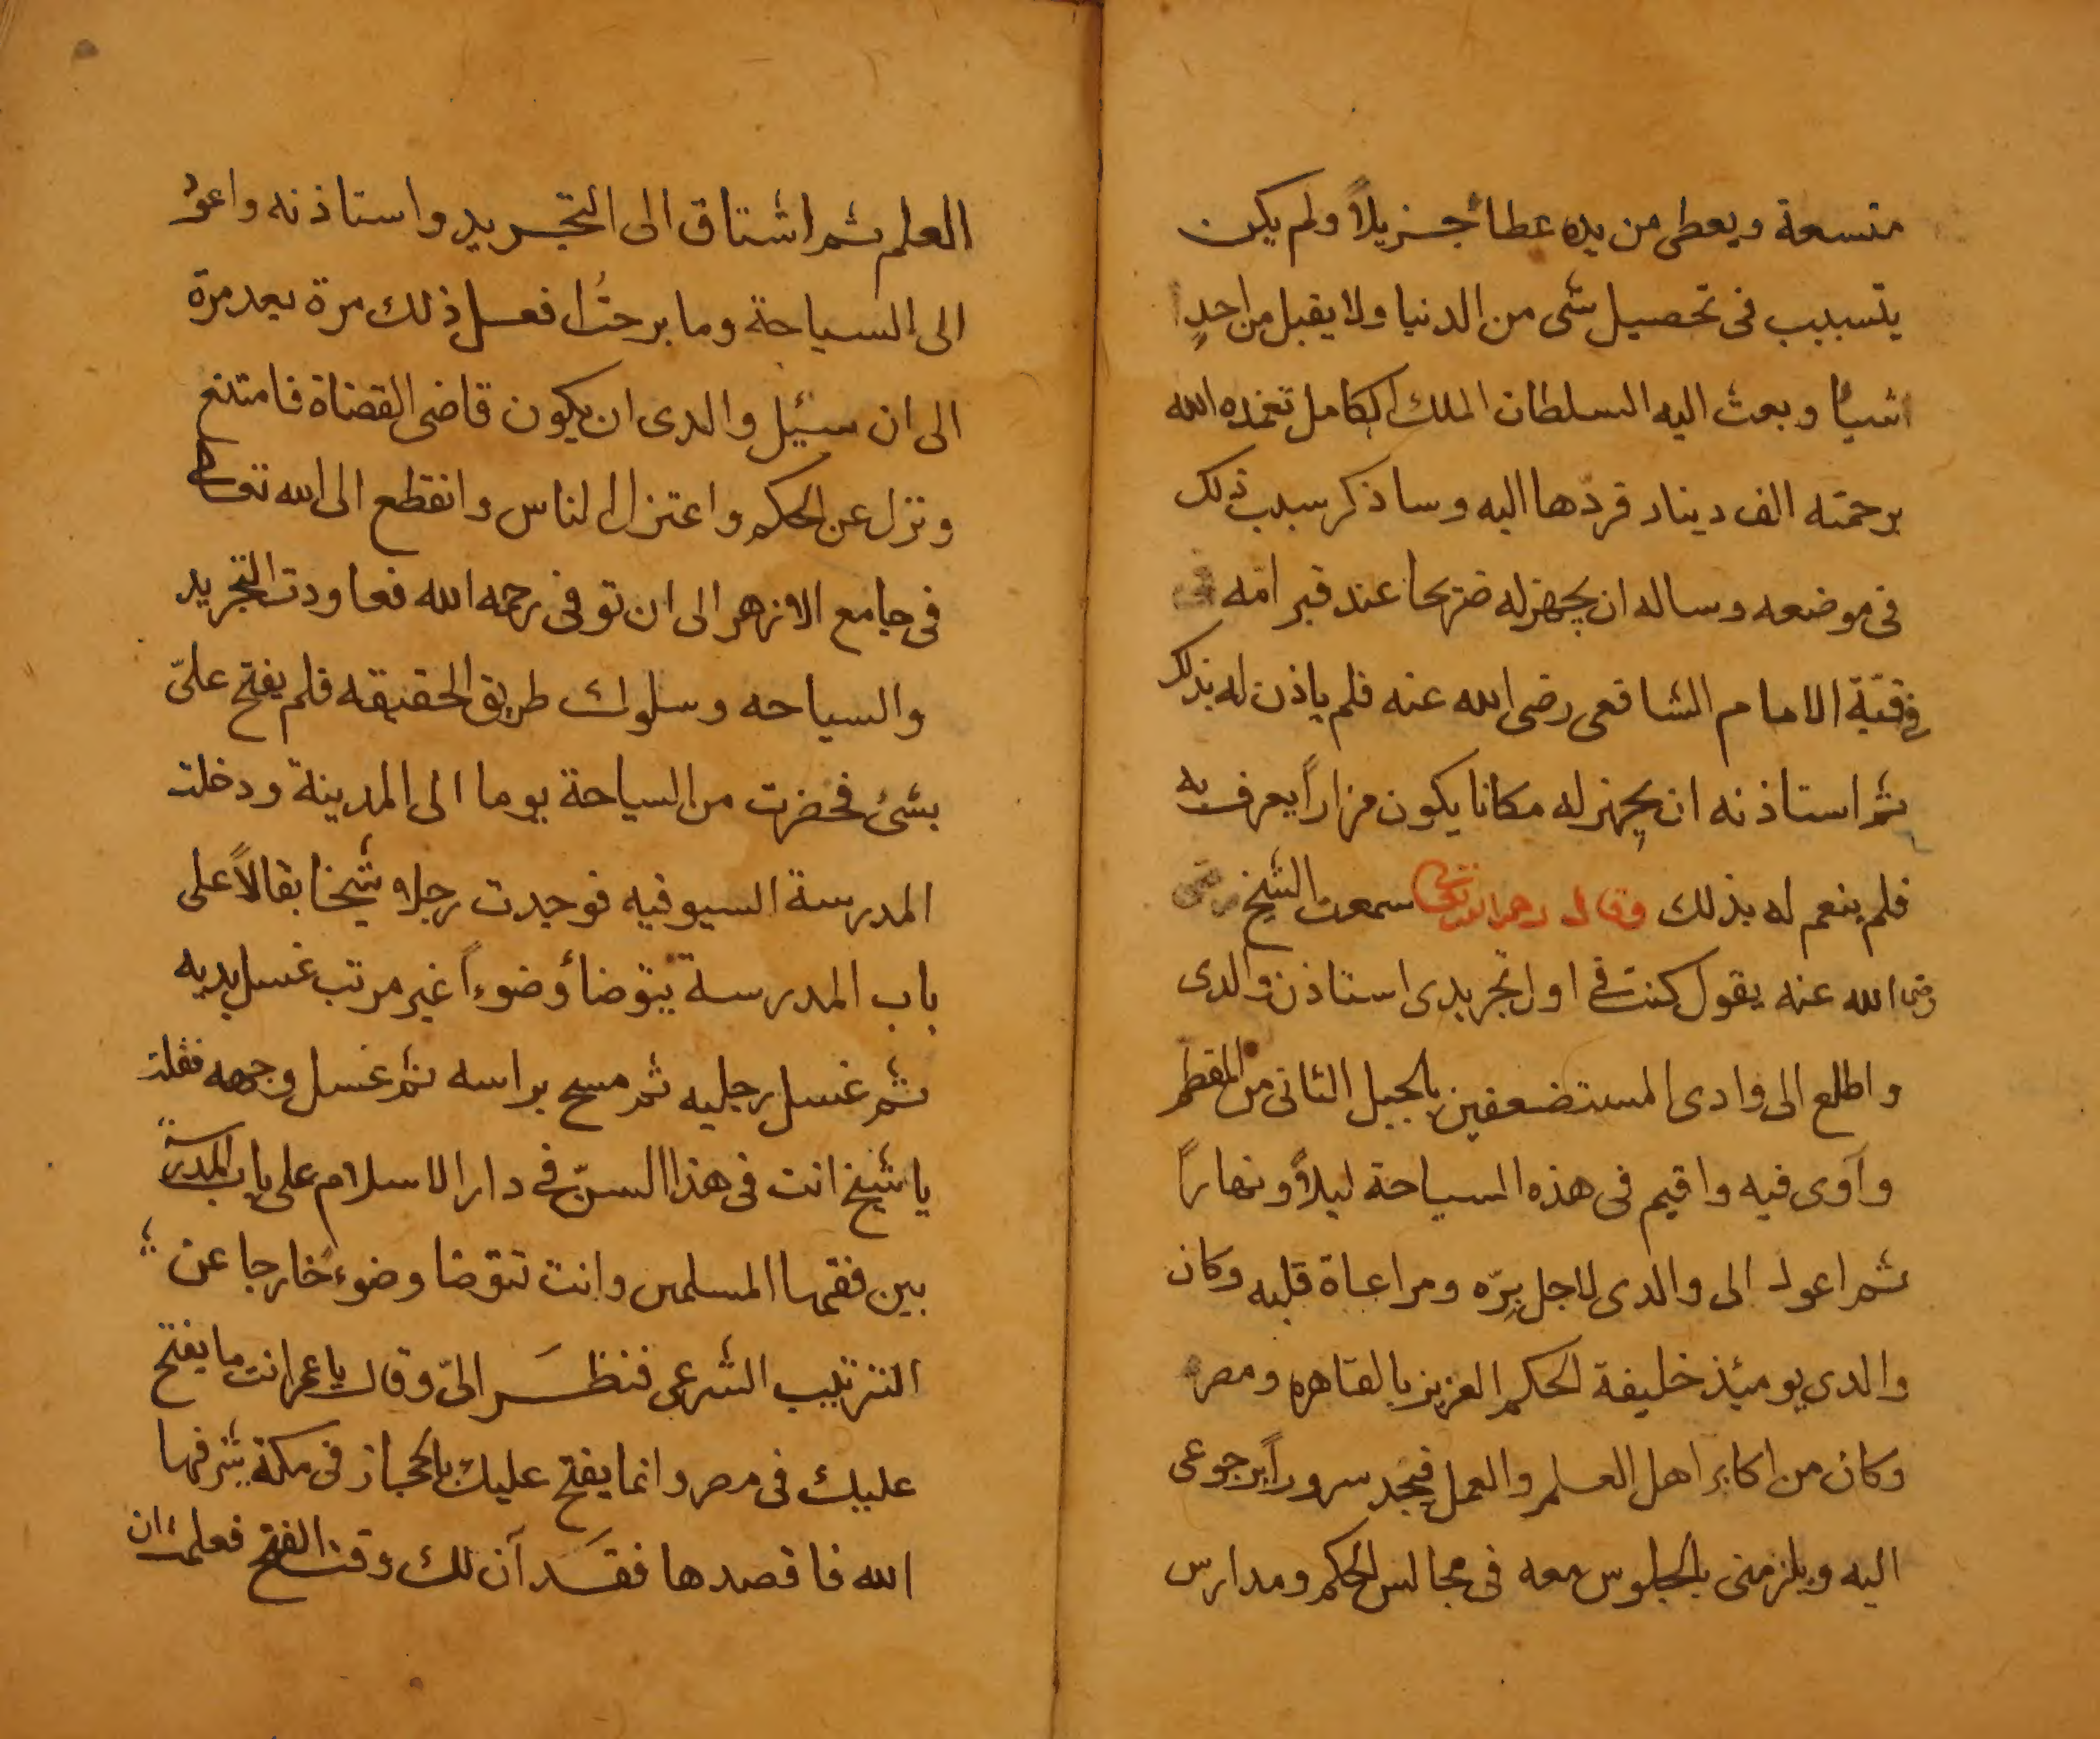 متسعة ويعطى من يده عطاء جزيلاً ولم يكن
يتسبب فى تحصيل شى من الدنيا ولا يقبل من احدٍ
شيأ وبعث اليه السلطان الملك الكامل تغمده الله
برحمته الف دينار فردّها اليه وساذكر سبب ذلك
فى موضعه وساله ان يجهز له ضريحا عند قبر امّه
فى قبّة الامام الشافعى رضى الله عنه فلم ياذن له بذلك
ثم استاذنه ان يجهز له مكانا يكون مزاراً يعرف به
فلم ينعم له بذلك وقال رحمه الله تعالى سمعت الشيخ
رضى الله عنه يقول كنت فى اول تجريدى استاذن والدى
واطلع الى وادى المستضعفين بالجبل الثانى من المقطم
وآوى فيه واقيم فى هذه السياحة ليلاً ونهاراً
ثم اعود الى والدى لاجل برّه ومراعاة قلبه وكان
والدى يوميئذ خليفة الحكم العزيز بالقاهره ومصر
وكان من اكابر اهل العلم والعمل فيجد سروراً برجوعى
اليه ويلزمنى بالجلوس معه فى مجالس الحكم ومدارس
العلم ثم اشتاق الى التجريد واستاذنه واعود
الى السياحة وما برحتُ افعل ذلك مرة بعد مرة
الى ان سئيل والدى ان يكون قاضى القضاة فامتنع
ونزل عن الحكم واعتزل الناس وانقطع الى الله تعالى
فى جامع الازهر الى ان توفى رحمه الله فعاودت التجريد
والسياحه وسلوك طريق الحقيقه فلم يفتح علىّ
بشئ فحضرت من السياحة يوما الى المدينة ودخلت
المدرسة السيوفيه فوجدت رجلا شيخا بقالاً على
باب المدرسة يتوضأ وضوءاً غير مرتب غسل يديه
ثم غسل رجليه ثم مسح براسه ثم غسل وجهه فقلت
يا شيخ انت فى هذا السنّ فى دار الاسلام على باب المدرسة
بين فقها المسلمين وانت تتوضا وضوءً خارجا عن
الترتيب الشرعى فنظَر الىّ وقال يا عمر انت ما يفتح
عليك فى مصر وانما يفتح عليك بالحجاز فى مكة شرفها
الله فاقصدها فقَد آن لك وقت الفتح فعلمت ان